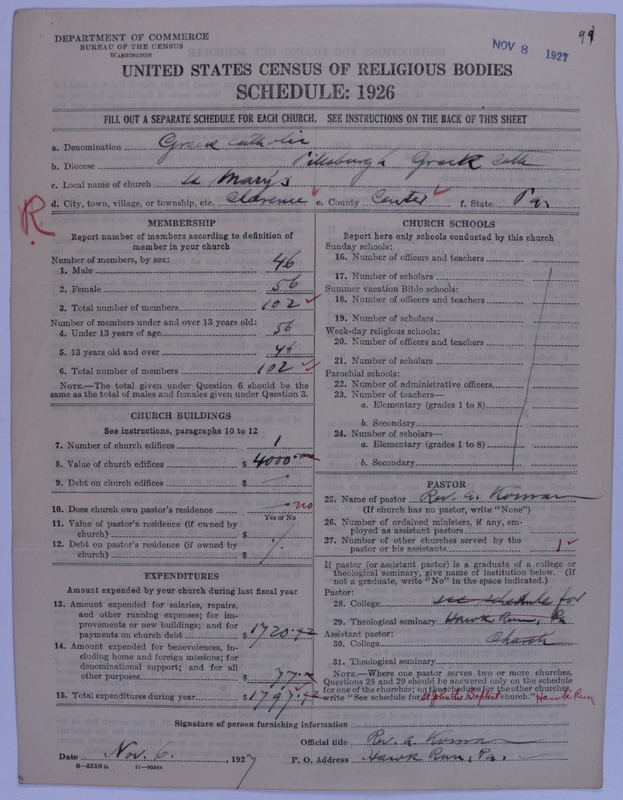 DEPARTMENT OF COMMERCE
BUREAU OF THE CENSUS
WASHINGTON
NOV 8 1927
UNITED STATES CENSUS OF RELIGIOUS BODIES
SCHEDULE: 1926
FILL OUT A SEPARATE SCHEDULE FOR EACH CHURCH. SEE INSTRUCTIONS ON THE BACK OF THIS SHEET
a. Denomination Greek Catholic
b. Diocese Pittsburgh Greek Cath
c. Local name of church St Mary's
d. City, town, village, or township, etc. Clarence e. County Center f. State Pa
R
MEMBERSHIP
Report number of members according to definition of member in your church
Number of members, by sex:
1. Male 46
2. Female 56
3. Total number of members 102
Number of members under and over 13 years old:
4. Under 13 years of age 56
5. 13 years old and over 46
6. Total number of members 102
NOTE.—The total given under Question 6 should be the same as the total of males and females given under Question 3.
CHURCH BUILDINGS
See instructions, paragraphs 10 to 12
7. Number of church edifices 1
8. Value of church edifices $ 4000
9. Debt on church edifices $
10. Does church own pastor's residence no
Yes or No
11. Value of pastor's residence (if owned by church) $
12. Debt on pastor's residence (if owned by church) $
EXPENDITURES
Amount expended by your church during last fiscal year
13. Amount expended for salaries, repairs, and other running expenses; for improvements or new buildings; and for payments on church debt $ 1720.
14. Amount expended for benevolences, including home and foreign missions; for denominational support; and for all other purposes $ 77
15. Total expenditures during year $ 1797.
CHURCH SCHOOLS
Report here only schools conducted by this church
Sunday schools:
16. Number of officers and teachers
17. Number of scholars
Summer vacation Bible schools:
18. Number of officers and teachers
19. Number of scholars
Week-day religious schools:
20. Number of officers and teachers
21. Number of scholars
Parochial schools:
22. Number of administrative officers
23. Number of teachers—
a. Elementary (grades 1 to 8)
b. Secondary
24. Number of scholars—
a. Elementary (grades 1 to 8)
b. Secondary
PASTOR
25. Name of pastor Rev. A. Koman
(If church has no pastor, write "None")
26. Number of ordained ministers, if any, employed as assistant pastors
27. Number of other churches served by the pastor or his assistants 1
If pastor (or assistant pastor) is a graduate of a college or theological seminary, give name of institution below. (If not a graduate, write "No" in the space indicated.)
Pastor:
28. College see schedule for
29. Theological seminary Hawk Run, Pa
Assistant pastor:
30. College Church
31. Theological seminary
NOTE.—Where one pastor serves two or more churches, Questions 28 and 29 should be answered only on the schedule for one of the churches; on the schedules for the other churches, write "See schedule for St John the Baptist church." Hawk Run
Signature of person furnishing information
Official title Rev. A. Koman
Date Nov. 6. , 1927 P. O. Address Hawk Run, Pa.
8—5518a 11—9054a